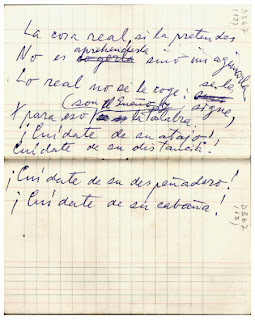 La cosa real, si la pretendes
aprehenderla
No es cogerla sino imaginarla
Lo real no se le coge: se le
sigue,
(son el sueño y
Y para eso la palabra.
¡Cuídate de su atajo!
Cuídate de su distancia!
¡Cuídate de su despeñadero!
¡Cuídate de su cabaña!